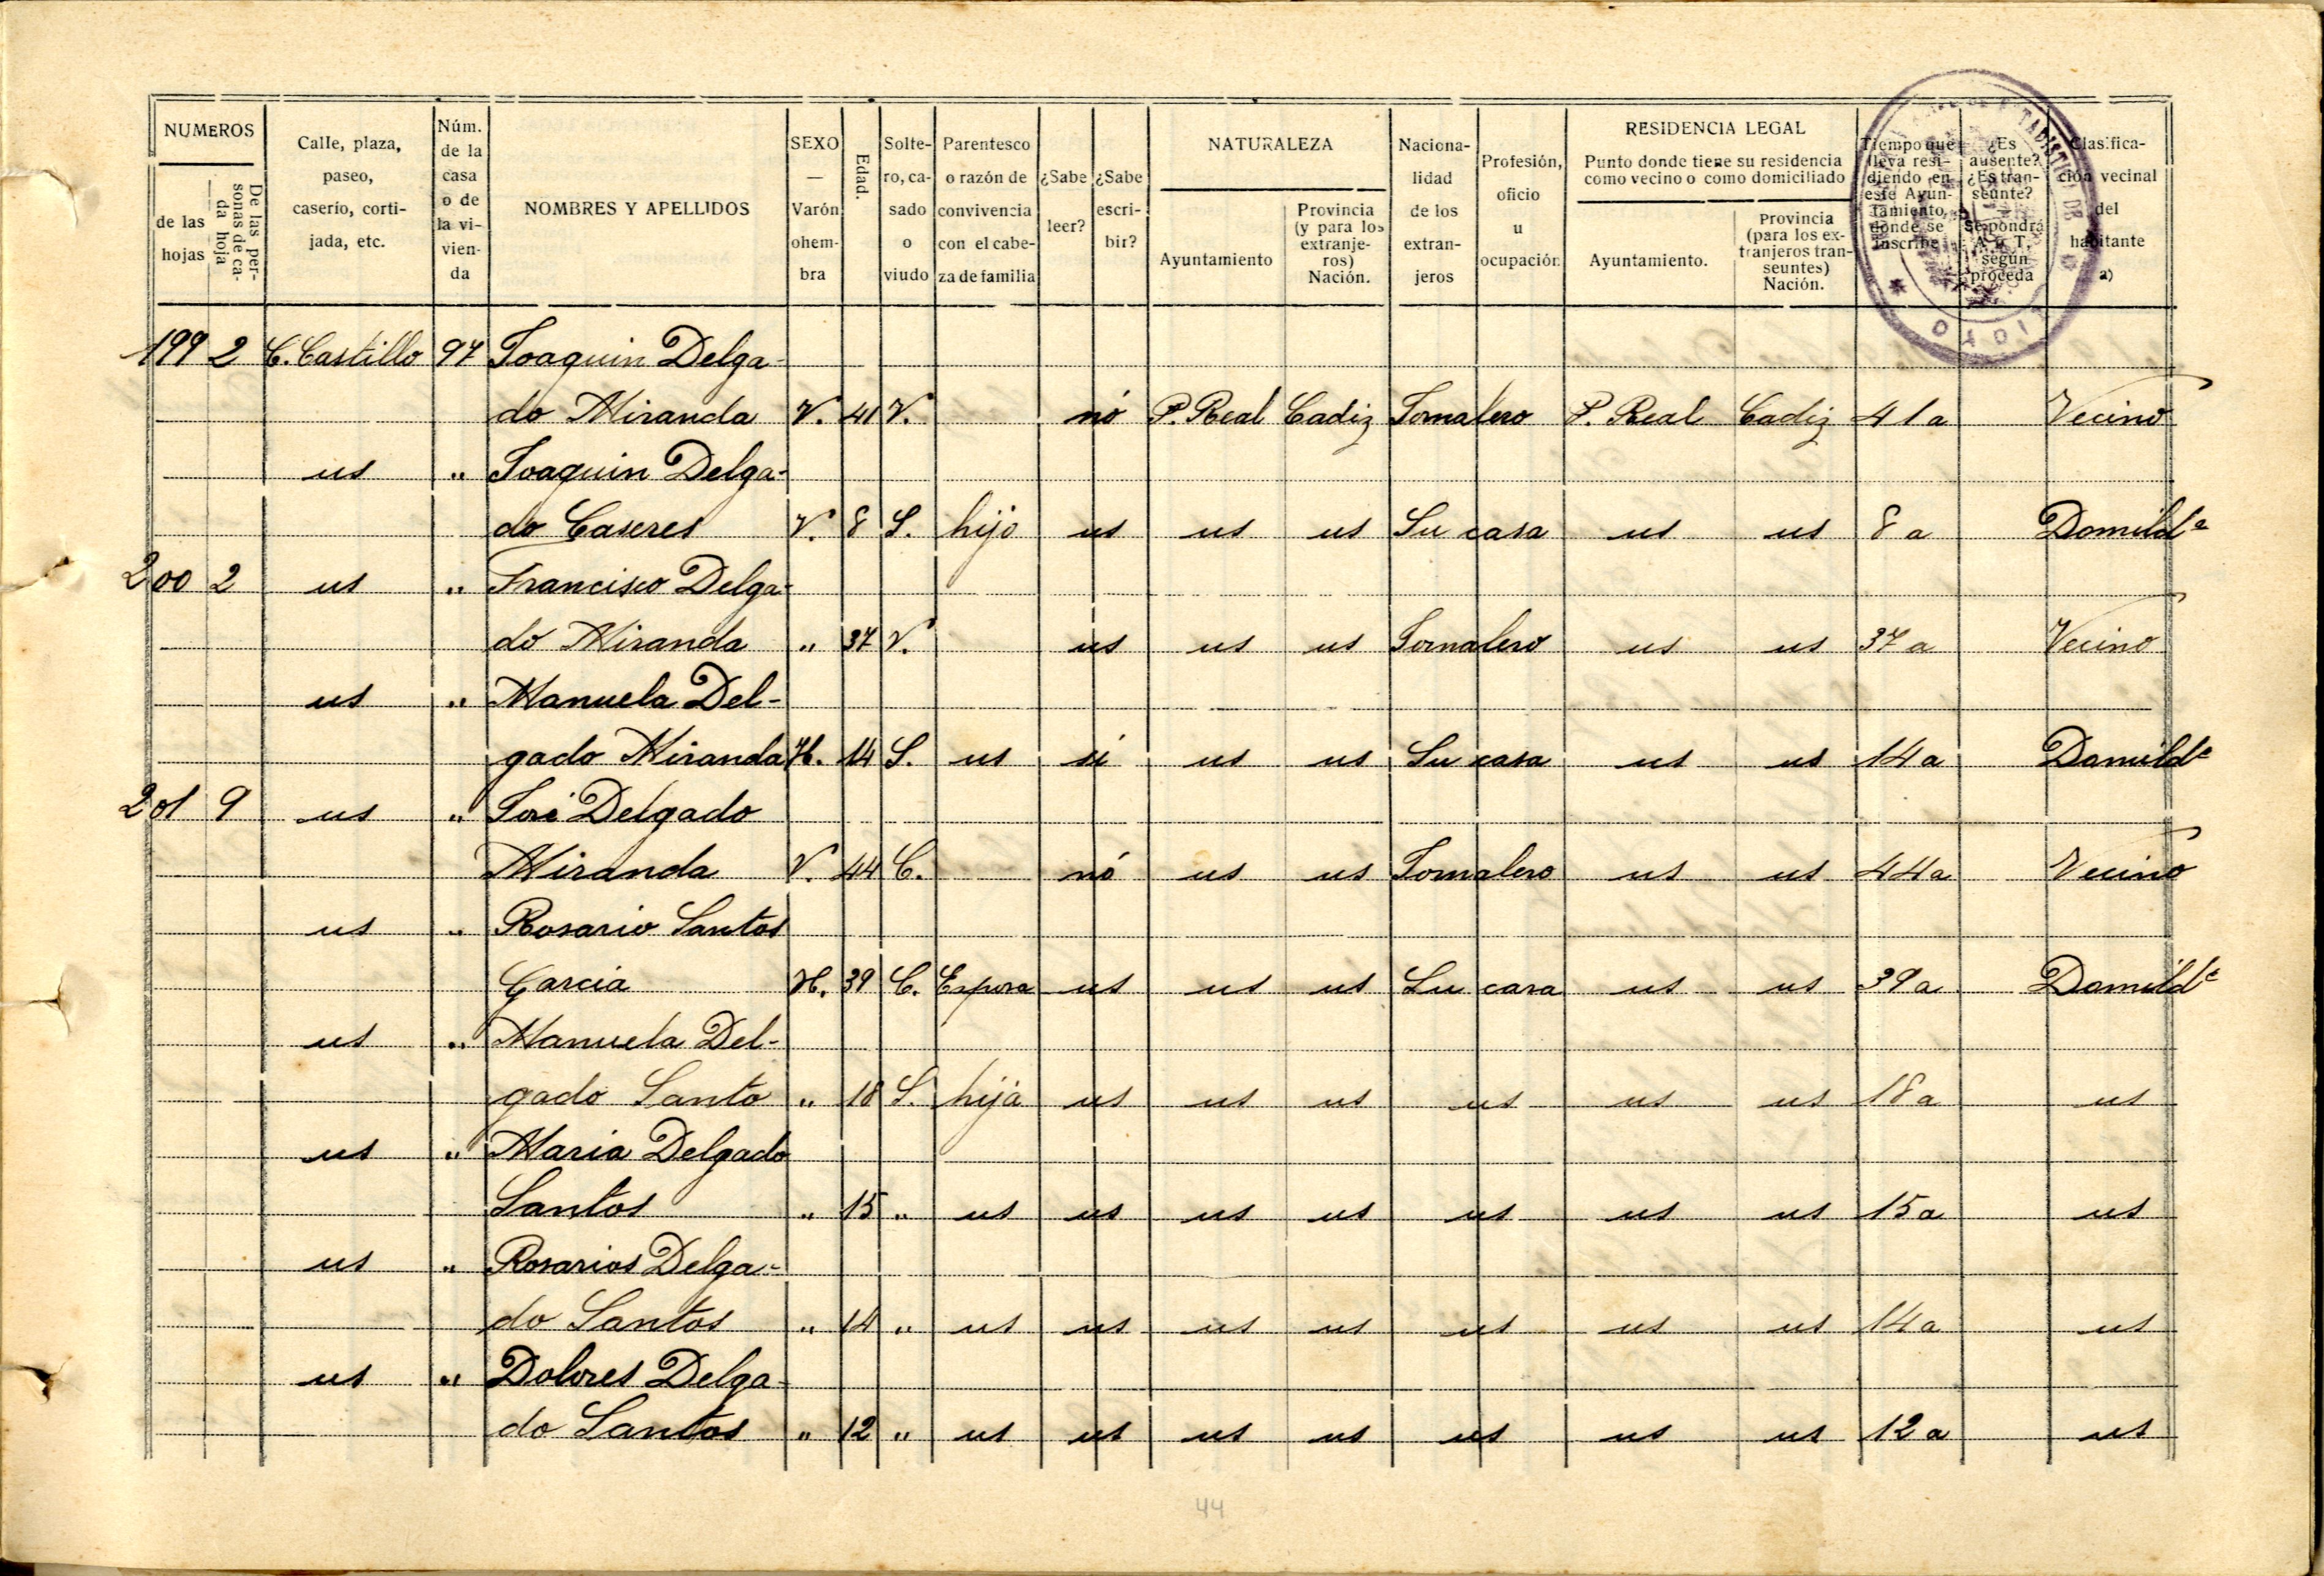 NUMEROS
de las hojas
De las personas de cada hoja
Calle, plaza, paseo, caserío, cortijada, etc.
Núm. de la casa o de la vivienda
NOMBRES Y APELLIDOS
SEXO — Varón ohembra
Edad.
Soltero, casado o viudo
Parentesco o razón de convivencia con el cabeza de familia
¿Sabe leer?
¿Sabe escribir?
NATURALEZA
Ayuntamiento
Provincia (y para los extranjeros) Nación.
Nacionalidad de los extranjeros
Profesión, oficio u ocupación
RESIDENCIA LEGAL
Punto donde tiene su residencia como vecino o como domiciliado
Ayuntamiento.
Provincia (para los extranjeros transeuntes) Nación.
Tiempo que lleva residiendo en este Ayuntamiento, donde se inscribe
¿Es ausente? ¿Es transeunte? Se pondrá A o T, según proceda
Clasificación vecinal del habitante a)
CADIZ
199 2 C. Castillo 97 Joaquin Delga-
do Miranda V. 41 V. nó P. Real Cadiz Jornalero P. Real Cadiz 41 a Vecino
us " Joaquin Delga-
do Caseres V. 8 S. hijo us us us Su casa us us 8 a Domildº
200 2 us " Francisco Delga-
do Miranda " 37 V. us us us Jornalero us us 37 a Vecino
us " Manuela Del-
gado Miranda H. 14 S. us si us us Su casa us us 14 a Domildº
201 9 us " José Delgado
Miranda V. 44 C. nó us us Jornalero us us 44 a Vecino
us " Rosario Santos
Garcia H. 39 C. Espora us us us Su casa us us 39 a Domildº
us " Manuela Del-
gado Santo " 18 S. hija us us us us us us 18 a us
us " Maria Delgado
Santos " 15 " us us us us us us us 15 a us
us " Rosarios Delga-
do Santos " 14 " us us us us us us us 14 a us
us " Dolores Delga-
do Santos " 12 " us us us us us us us 12 a us
44